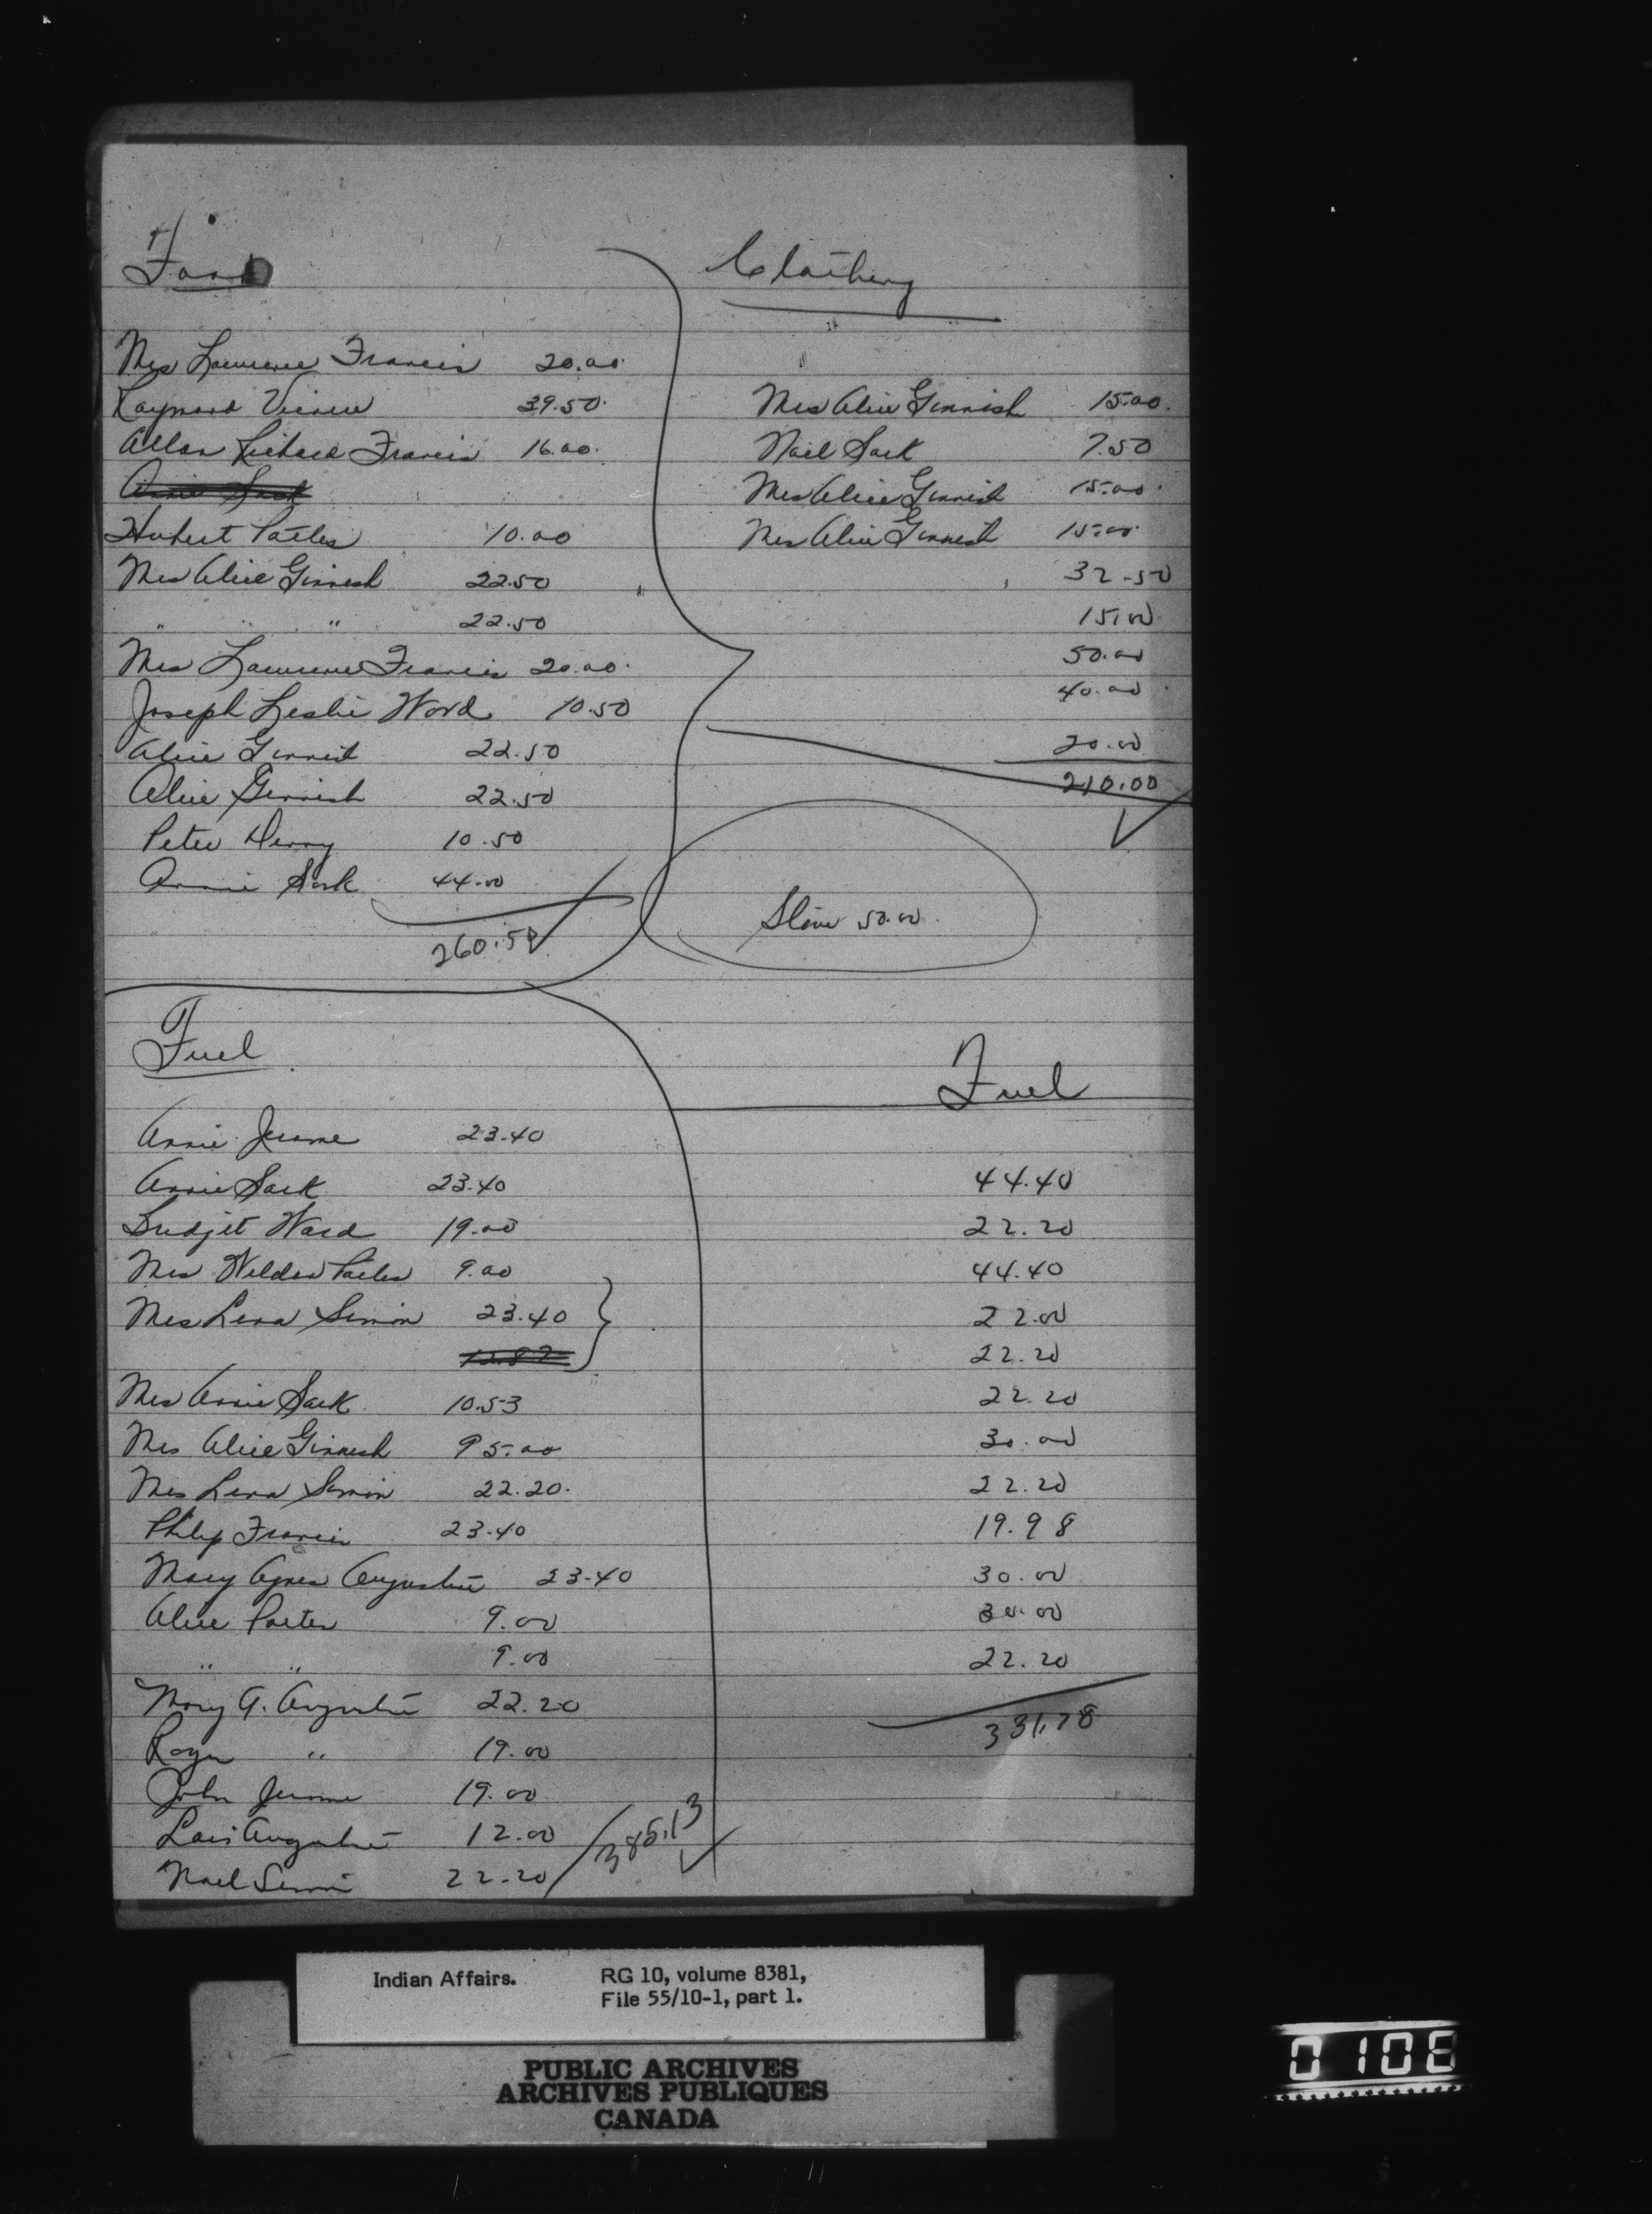 Food
Mrs Lawrence Francis 20.00
Raymond 39.50
Allan Richard Francis 16.00
Annie Sack
Hubert Paules 10.00
Mrs Alice Ginnish 22.50
" " " 22.50
Mrs Lawrence Francis 20.00
Joseph Leslie Ward 10.50
Alice Ginnish 22.50
Alice Ginnish 22.50
Peter 10.50
Annie Sack 44.00
260.50
Clothing
Mrs Alice Ginnish 15.00
Noel Sack 7.50
Mrs Alice Ginnish 15.00
Mrs Alice Ginnish 15.00
32.50
15.00
50.00
40.00
20.00
210.00
50.00
Fuel
Annie Jerome 23.40
Annie Sack 23.40
Bridjet Ward 19.00
Mrs Weldon 9.00
Mrs Lena Simon 23.40
12.87
Mrs Annie Sack 10.53
Mrs Alice Ginnish 95.00
Mrs Lena Simon 22.20
Philip Francis 23.40
Mary Agnes Augustine 23.40
Alice 9.00
" " 9.00
Mary A. Augustine 22.20
Roger " 19.00
John Jerome 19.00
Augustine 12.00
Noel Simon 22.20
385.13
Fuel
44.40
22.20
44.40
22.00
22.20
22.20
30.00
22.20
19.98
30.00
30.00
22.20
331.78
Indian Affairs. RG 10, volume 8381,
File 55/10-1, part 1.
PUBLIC ARCHIVES
ARCHIVES PUBLIQUES
CANADA